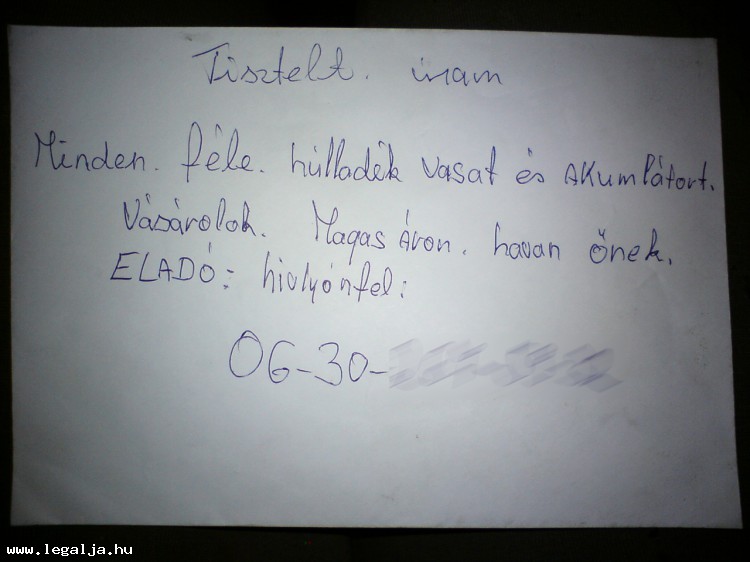 Tisztelt. uram
Minden. féle. hulladék vasat és AKumlátort.
Vásárolok. Magas Áron. havan önek.
ELADÓ: hivlyónfel:
06-30-
www.legalja.hu